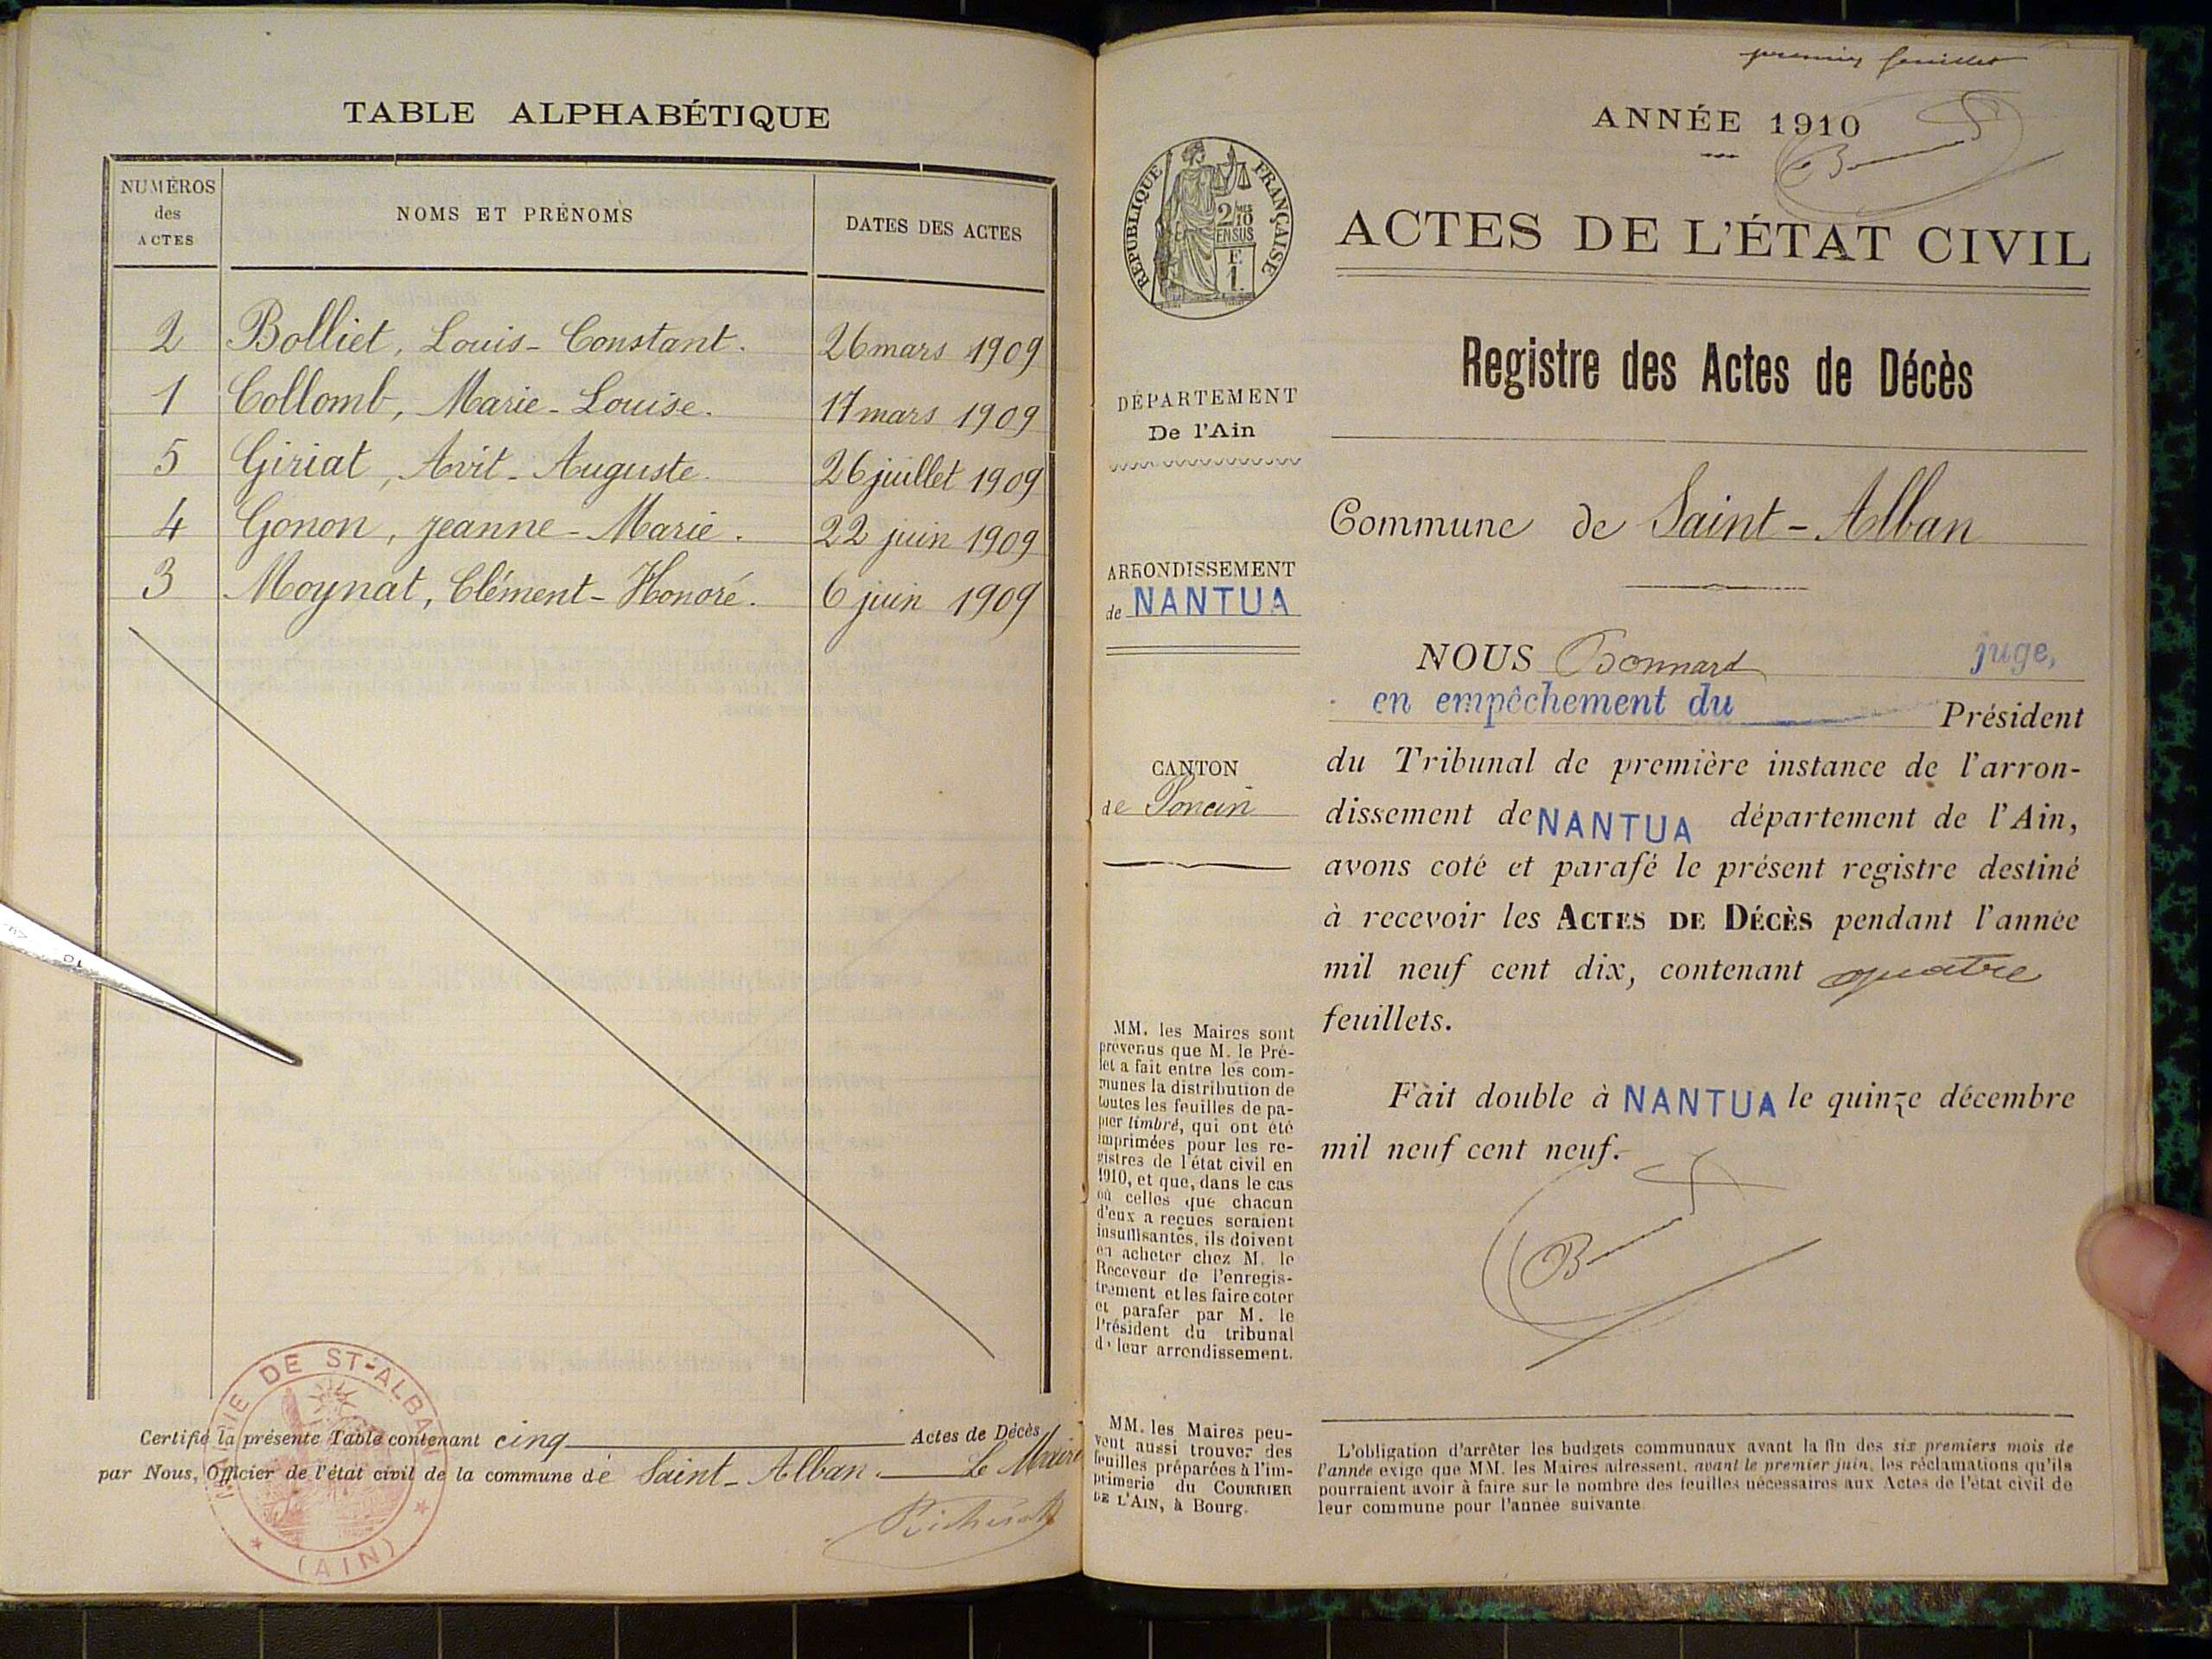 TABLE ALPHABÉTIQUE
NUMÉROS
des
ACTES
NOMS ET PRÉNOMS
DATES DES ACTES
2 Bolliet, Louis-Constant. 26 mars 1909
1 Collomb, Marie-Louise. 17 mars 1909
5 Giriat, Avit-Auguste. 26 juillet 1909
4 Gonon, Jeanne-Marie. 22 juin 1909
3 Moynat, Clément-Honoré. 6 juin 1909
Certifié la présente Table contenant cinq Actes de Décès
par Nous, Officier de l'état civil de la commune de Saint-Alban. Le Maire
MAIRIE DE ST-ALBAN
(AIN)
premier feuillet
ANNÉE 1910
RÉPUBLIQUE FRANÇAISE
2/10
EN SUS
F.
1.
ACTES DE L'ÉTAT CIVIL
Registre des Actes de Décès
DÉPARTEMENT
De l'Ain
Commune de Saint-Alban
ARRONDISSEMENT
de NANTUA
CANTON
de Poncin
NOUS Bonnard juge,
en empêchement du Président
du Tribunal de première instance de l'arron-
dissement de NANTUA département de l'Ain,
avons coté et parafé le présent registre destiné
à recevoir les ACTES DE DÉCÈS pendant l'année
mil neuf cent dix, contenant quatre
feuillets.
Fait double à NANTUA le quinze décembre
mil neuf cent neuf.
MM. les Maires sont
prévenus que M. le Pré-
fet a fait entre les com-
munes la distribution de
toutes les feuilles de pa-
pier timbré, qui ont été
imprimées pour les re-
gistres de l'état civil en
1910, et que, dans le cas
où celles que chacun
d'eux a reçues seraient
insuffisantes, ils doivent
en acheter chez M. le
Receveur de l'enregis-
trement et les faire coter
et parafer par M. le
Président du tribunal
de leur arrondissement.
MM. les Maires peu-
vent aussi trouver des
feuilles préparées à l'im-
primerie du COURRIER
DE L'AIN, à Bourg.
L'obligation d'arrêter les budgets communaux avant la fin des six premiers mois de
l'année exige que MM. les Maires adressent, avant le premier juin, les réclamations qu'ils
pourraient avoir à faire sur le nombre des feuilles nécessaires aux Actes de l'état civil de
leur commune pour l'année suivante.